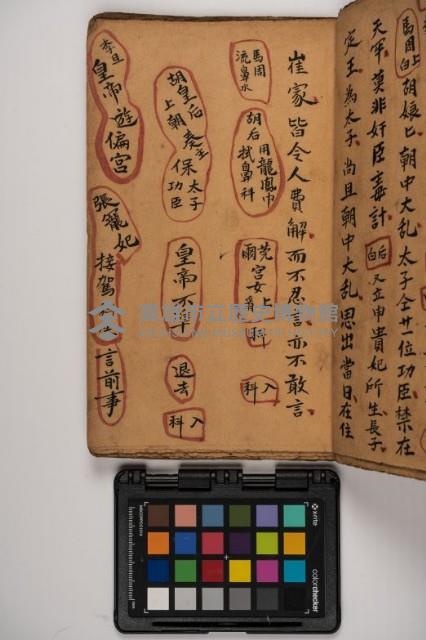 馬周
上
白
胡娘匕朝中大乱太子仝廿位功臣禁在
天牢莫非奸臣毒計
后
白
又立申貴妃所生長子
定王為太子尚且朝中大乱思出當日在住
崔家皆令人費解而不忍言亦不敢言
馬周
流鼻水
胡后用龍鳳巾
拭鼻科
莞宮女上
爾
科
入
科
胡皇后
上朝奏主
保太子
功臣
皇帝不準
退去
入
科
李旦
皇帝遊偏宮
張妃
接駕
言前事
高雄市立歷史博物館
KAOHSIUNG MUSEUM OF HISTORY
x-rite
colorchecker